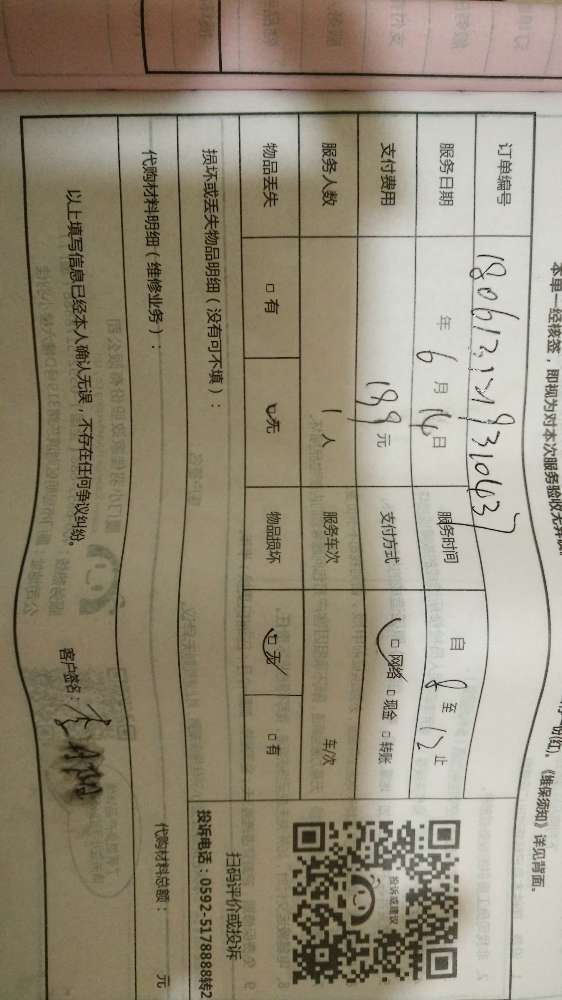 本单一经核签，即视为对本次服务验收无异议。
《维保须知》详见背面。
订单编号
服务日期 年 6 月 14 日 服务时间 自 8 至 12 止
支付费用 199 元 支付方式 □ 网络 □ 现金 □ 转账
服务人数 1 人 服务车次 车/次
物品丢失 □ 有 □ 无 物品损坏 □ 无 □ 有
投诉或建议
扫码评价或投诉
投诉电话：0592-5178888转2
损坏或丢失物品明细（没有可不填）：
代购材料明细（维修业务）：
代购材料总额： 元
以上填写信息已经本人确认无误，不存在任何争议纠纷。
客户签名：